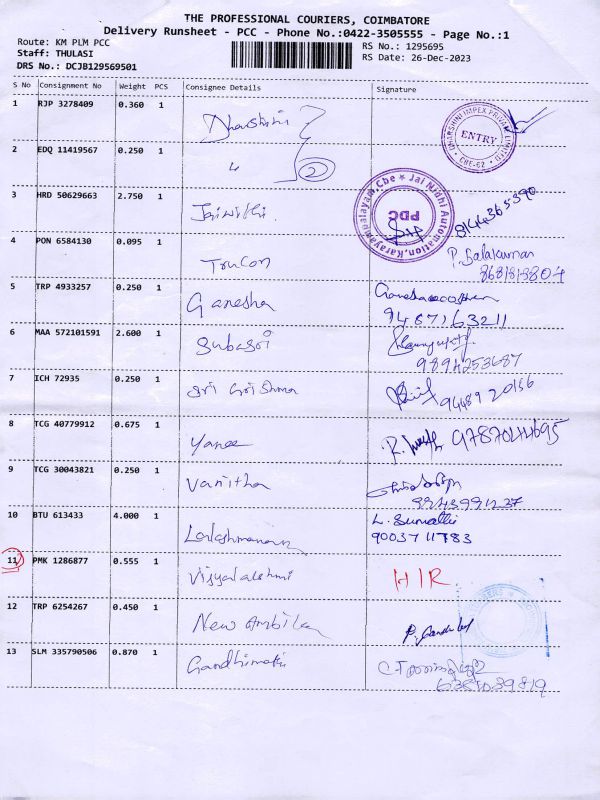 THE PROFESSIONAL COURIERS, COIMBATORE
Delivery Runsheet - PCC - Phone No.:0422-3505555 - Page No.:1
Route: KM PLM PCC
RS No.: 1295695
Staff: THULASI
RS Date: 26-Dec-2023
DRS No.: DCJB129569501
S No Consignment No Weight PCS Consignee Details Signature
1 RJP 3278409 0.360 1 Dharshini
DHARSHINI IMPEX PRIVATE LIMITED ENTRY CBE-62
2 EDQ 11419567 0.250 1 " 2
3 HRD 50629663 2.750 1 Jai Nidhi
Jai Nidhi Automation, Karayampalayam, Cbe PDC
8144365390
4 PON 6584130 0.095 1 Trucon P. Balakumar
8681818804
5 TRP 4933257 0.250 1 Ganesha
9487163211
6 MAA 572101591 2.600 1 Subasri
9894253687
7 ICH 72935 0.250 1 Sri Grishma 9448920156
8 TCG 40779912 0.675 1 Yanee 9787044695
9 TCG 30043821 0.250 1 Vanitha
10 BTU 613433 4.000 1 Lakshmanan L. Sumathi
9003711783
11 PMK 1286877 0.555 1 Vijyalakshmi HIR
12 TRP 6254267 0.450 1 New Ambika
13 SLM 335790506 0.870 1 Gandhimathi